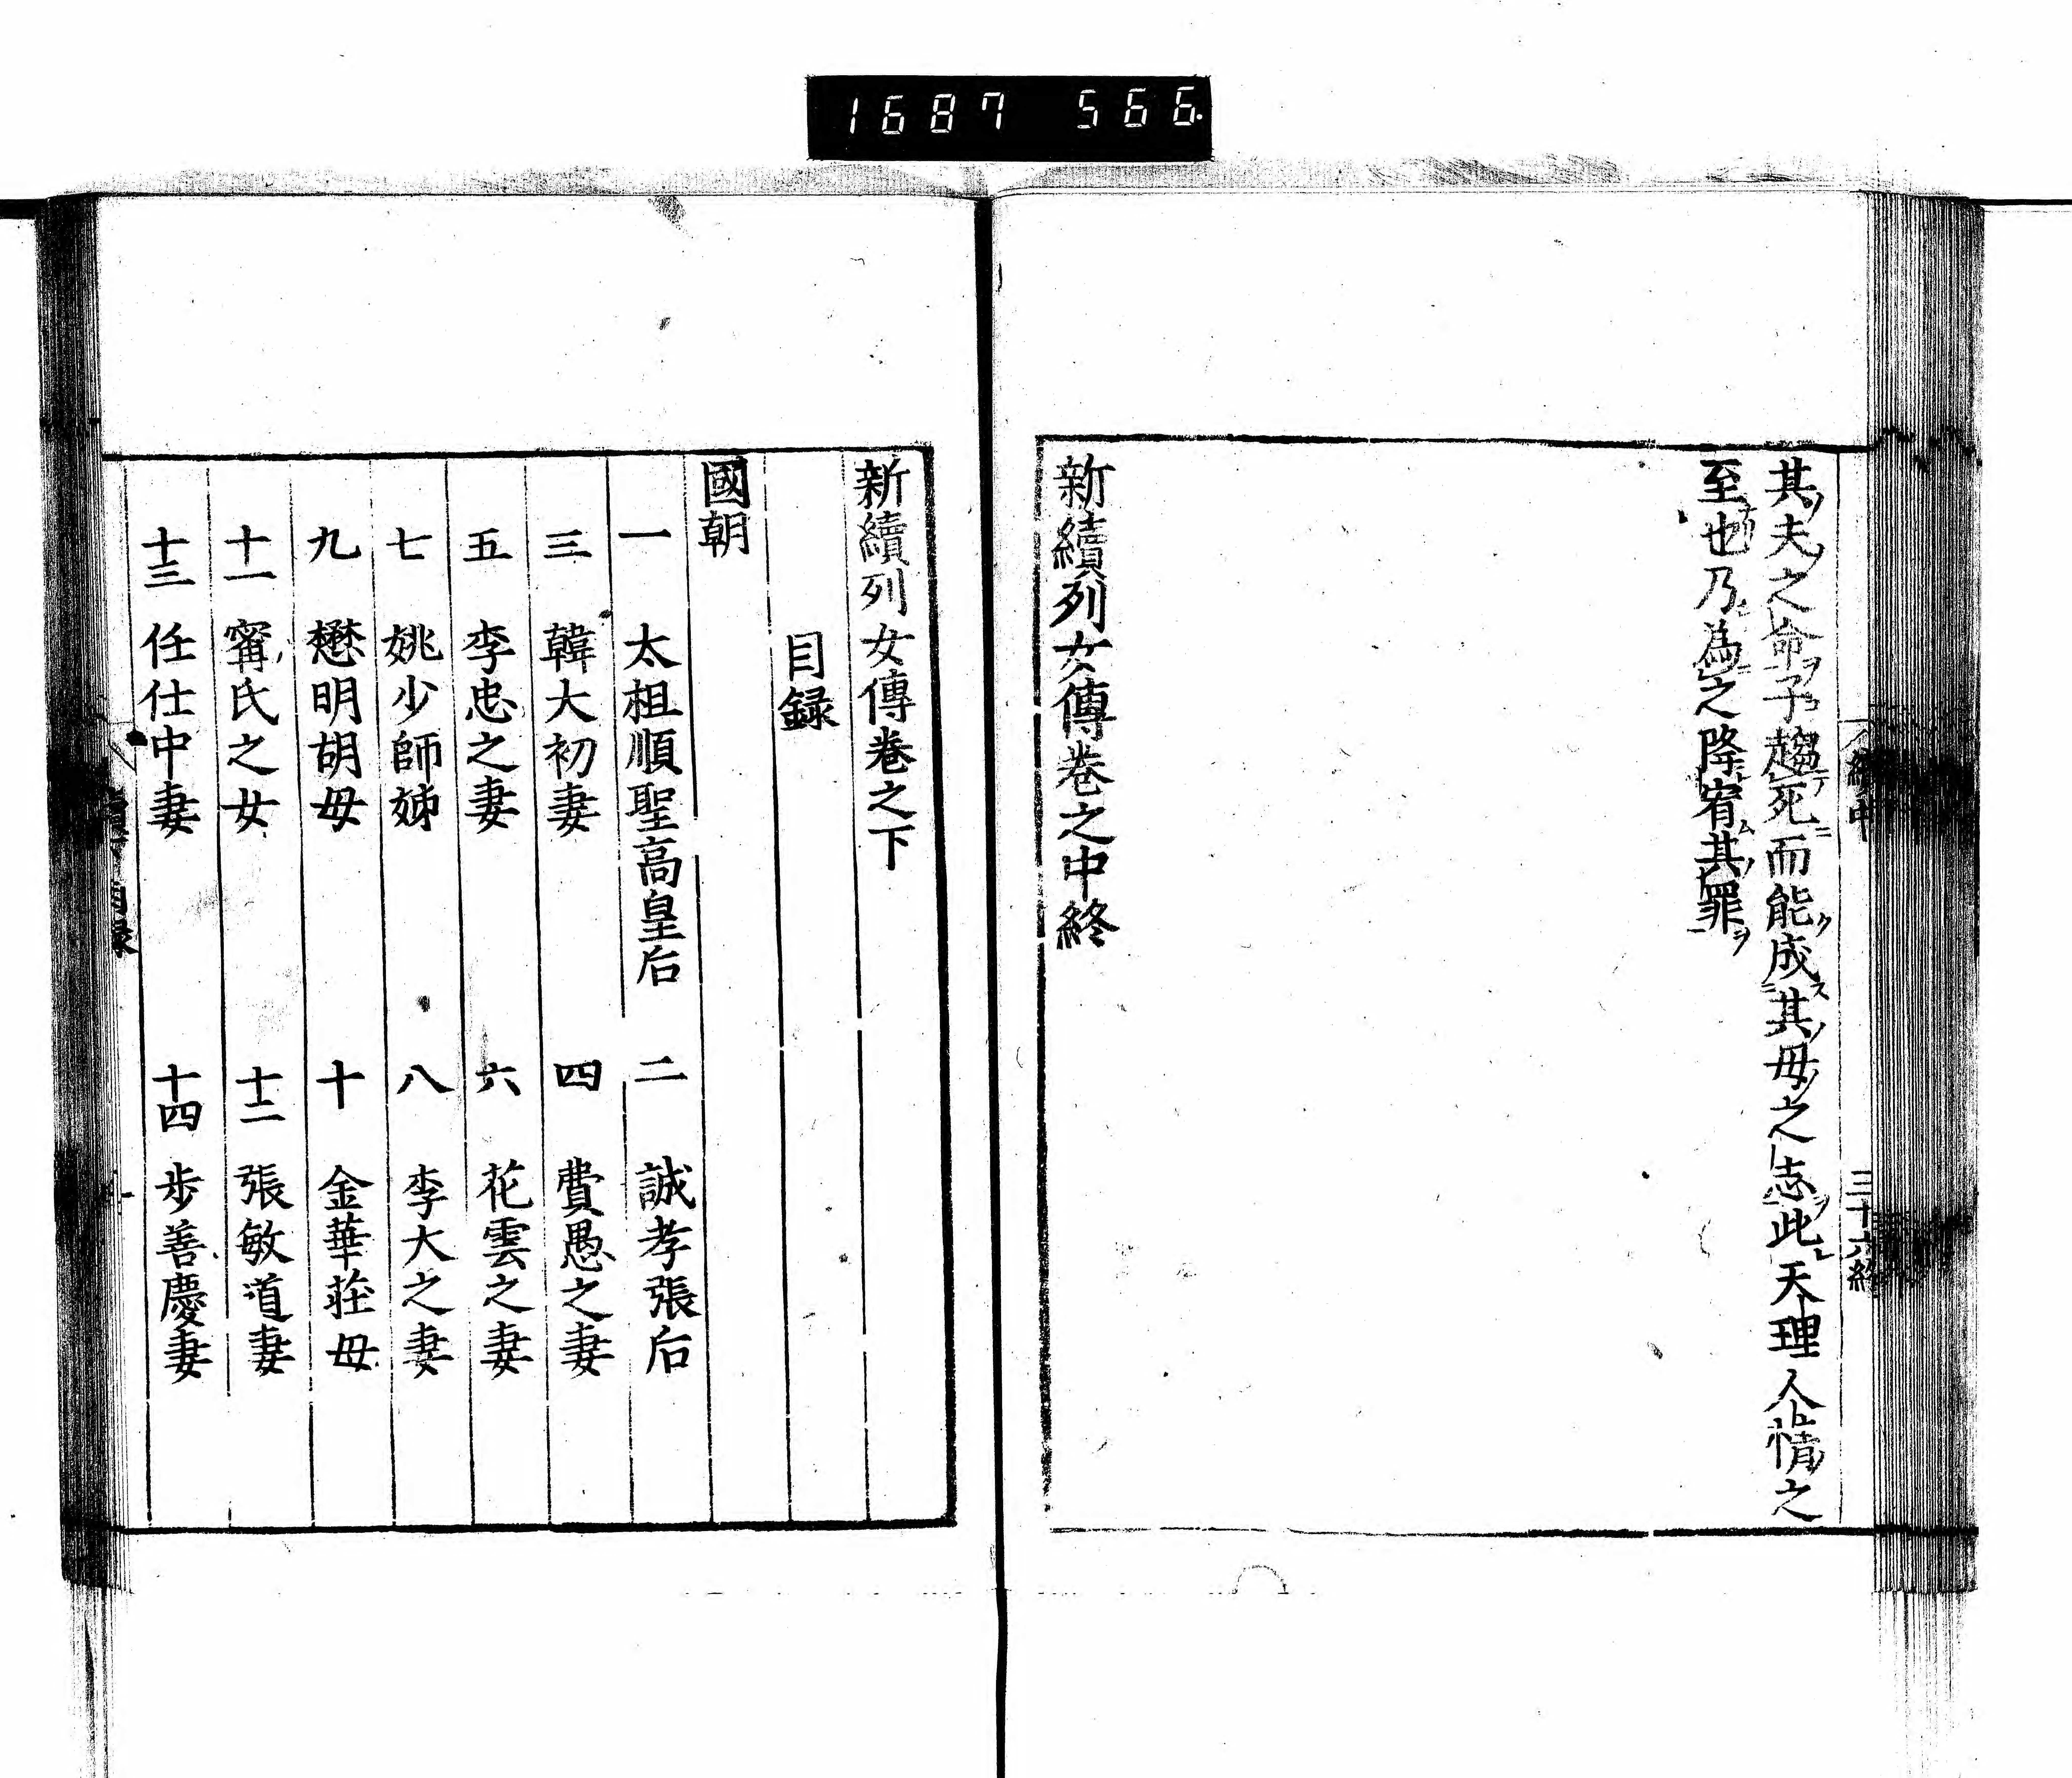 1687 566
其夫之命子趨死而能成其母之志此天理人情之
至也乃為之降宥其罪
新續列女傳卷之中終
三十六終
新續列女傳卷之下
目録
國朝
一 太祖順聖高皇后 二 誠孝張后
三 韓大初妻 四 費愚之妻
五 李忠之妻 六 花雲之妻
七 姚少師姊 八 李大之妻
九 懋明胡母 十 金華莊母
十一 甯氏之女 十二 張敏道妻
十三 任仕中妻 十四 步善慶妻